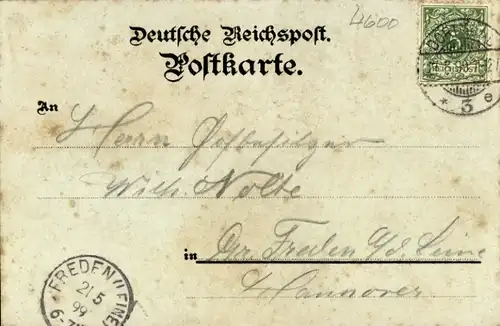 4600
Deutsche Reichspost.
Postkarte.
An
Herrn Hofbesitzer
Wilh. Nolte
in Gr. Freden a/d Leine
Hannover
FREDEN (LEINE)
21/5
99
6-7
* 3 e